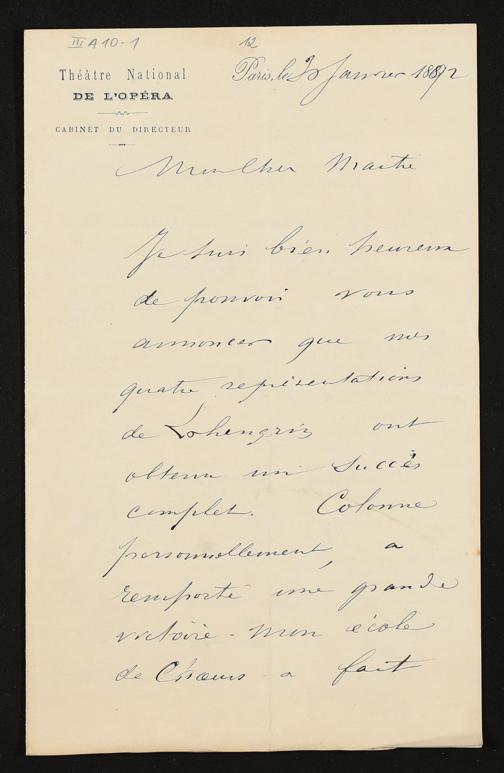 III A 10-1
12
Théâtre National
DE L'OPÉRA
CABINET DU DIRECTEUR
Paris, le Janvier 1892
Mon Cher Maître
Je suis bien heureux
de pouvoir vous
annoncer que mes
quatre représentations
de Lohengrin ont
obtenu un succès
complet. Colonne
personnellement, a
remporté une grande
victoire - mon école
de Chœurs a fait